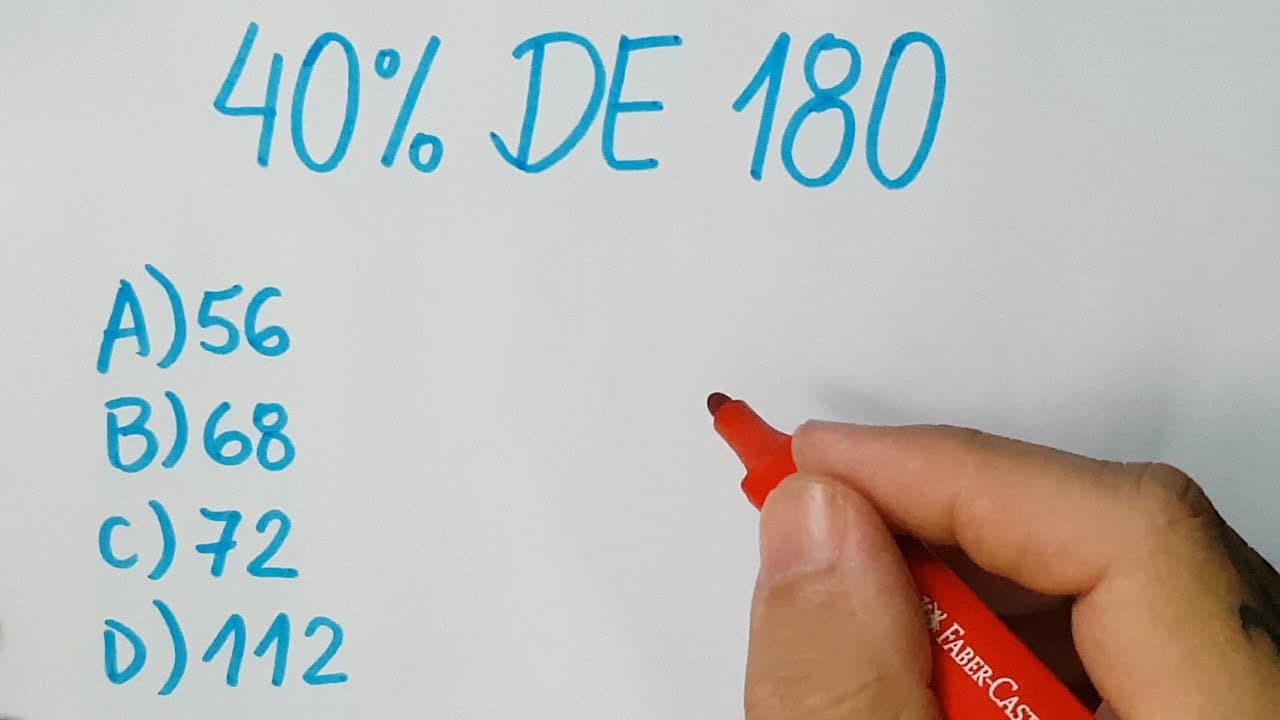 40% DE 180
A) 56
B) 68
C) 72
D) 112
FABER-CAST